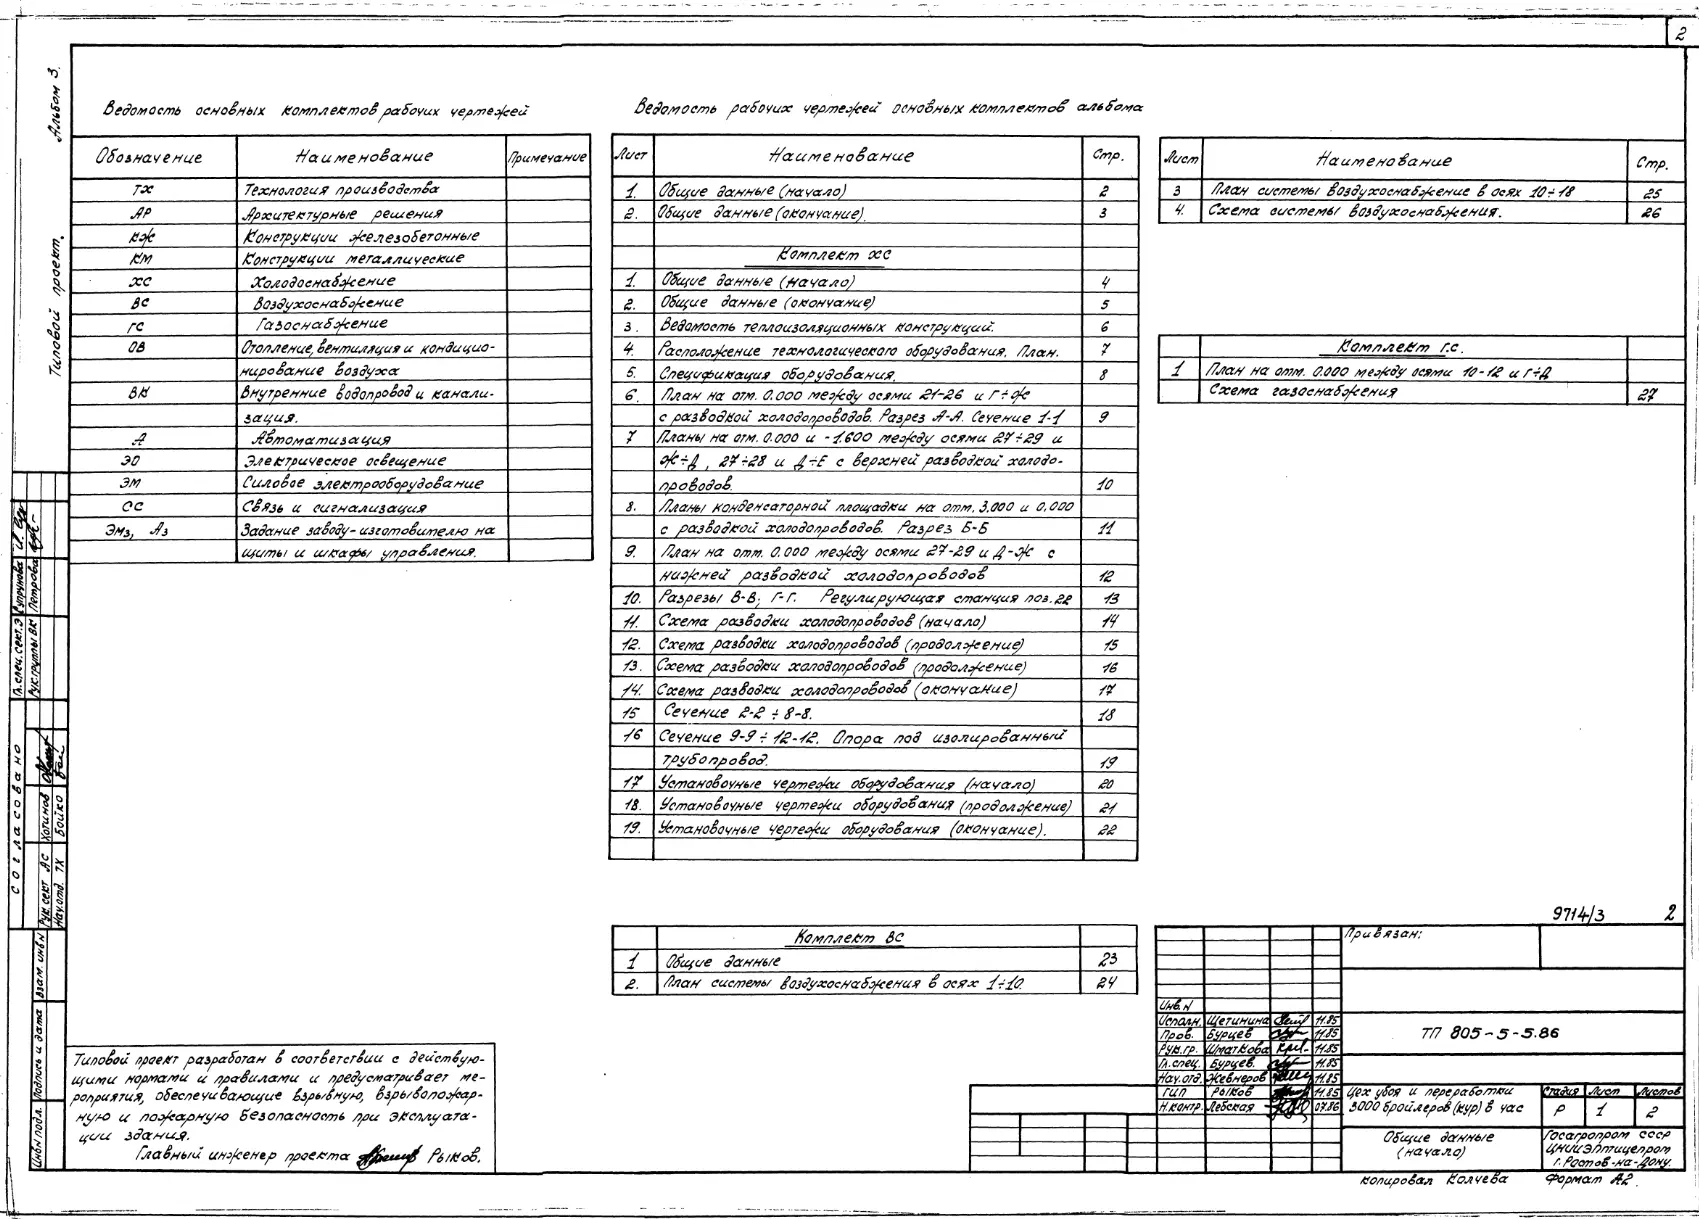 2
Альбом 3.
Типовой проект.
Ведомость основных комплектов рабочих чертежей
Обозначение Наименование Примечание
ТХ Технология производства
АР Архитектурные решения
КЖ Конструкции железобетонные
КМ Конструкции металлические
ХС Холодоснабжение
ВС Воздухоснабжение
ГС Газоснабжение
ОВ Отопление, вентиляция и кондицио-
нирование воздуха
ВК Внутренние водопровод и канали-
зация.
А Автоматизация
ЭО Электрическое освещение
ЭМ Силовое электрооборудование
СС Связь и сигнализация
ЭМз, Аз Задание заводу-изготовителю на
щиты и шкафы управления.
Ведомость рабочих чертежей основных комплектов альбома
Лист Наименование Стр.
1. Общие данные (начало) 2
2. Общие данные (окончание). 3
Комплект ХС
1. Общие данные (начало) 4
2. Общие данные (окончание) 5
3. Ведомость теплоизоляционных конструкций. 6
4. Расположение технологического оборудования. План. 7
5. Спецификация оборудования. 8
6. План на отм. 0.000 между осями 21-26 и Г÷Ж
с разводкой холодопроводов. Разрез А-А. Сечение 1-1 9
7 Планы на отм. 0.000 и -1.600 между осями 27÷29 и
Ж÷Д, 27÷28 и Д÷Е с верхней разводкой холодо-
проводов. 10
8. Планы конденсаторной площадки на отм. 3,000 и 0,000
с разводкой холодопроводов. Разрез Б-Б 11
9. План на отм. 0.000 между осями 27-29 и Д-Ж с
нижней разводкой холодопроводов 12
10. Разрезы В-В; Г-Г. Регулирующая станция поз.22 13
11. Схема разводки холодопроводов (начало) 14
12. Схема разводки холодопроводов (продолжение) 15
13. Схема разводки холодопроводов (продолжение) 16
14. Схема разводки холодопроводов (окончание) 17
15 Сечение 2-2 ÷ 8-8. 18
16 Сечение 9-9 ÷ 12-12. Опора под изолированный
трубопровод. 19
17 Установочные чертежи оборудования (начало) 20
18. Установочные чертежи оборудования (продолжение) 21
19. Установочные чертежи оборудования (окончание). 22
Комплект ВС
1 Общие данные 23
2. План системы воздухоснабжения в осях 1÷10 24
Лист Наименование Стр.
3 План системы воздухоснабжение в осях 10÷18 25
4. Схема системы воздухоснабжения. 26
Комплект Г.С.
1 План на отм. 0.000 между осями 10-12 и Г÷Д
Схема газоснабжения 27
Типовой проект разработан в соответствии с действую-
щими нормами и правилами и предусматривает ме-
роприятия, обеспечивающие взрывную, взрывопожар-
ную и пожарную безопасность при эксплуата-
ции здания.
Главный инженер проекта Рыков.
Согласовано
Гл.спец.сект.Э Супрунова
Рук.группы ВК Петрова
Рук.сект АС Хотинов
Нач.отд. ТХ Бойко
Взам. инв.N
Подпись и дата
Инв.N подл.
9714/3 2
Привязан:
Инв.N
Исполн. Щетинина 11.85
Пров. Бурцев 11.85
Рук.гр. Шматкова 11.85
Гл.спец. Бурцев. 11.85
Нач.отд. Жевнеров 11.85
ГИП Рыков 11.85
Н.контр. Лебская 07.86
ТП 805-5-5.86
Цех убоя и переработки
3000 бройлеров (кур) в час
Стадия Лист Листов
Р 1 2
Общие данные
(начало)
Госагропром СССР
ЦНИИЭПптицепром
г.Ростов-на-Дону.
Копировал Колчева Формат А2.